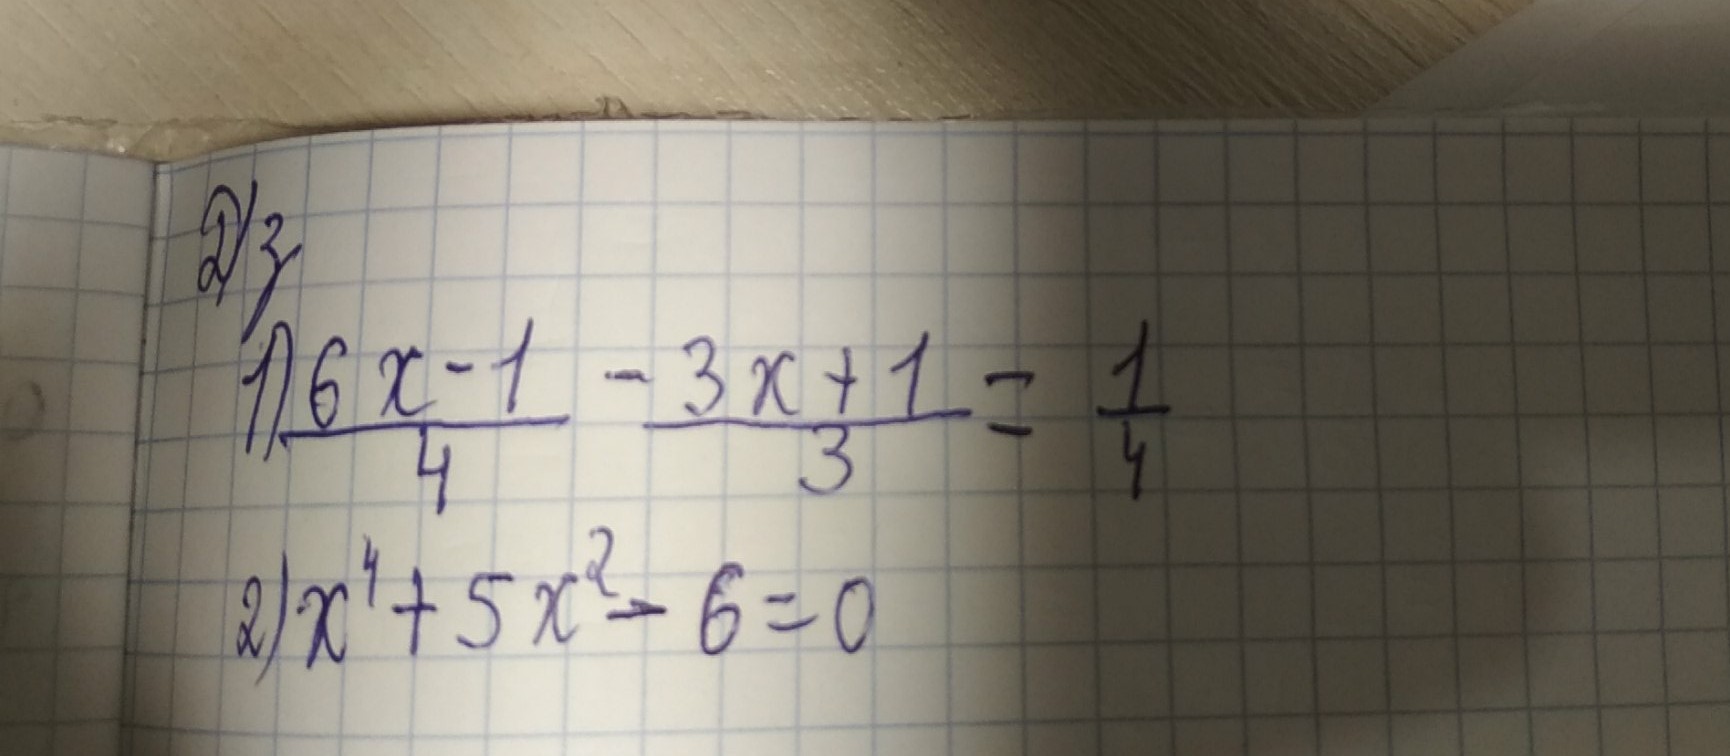 Д/з
1) (6x-1)/4 - (3x+1)/3 = 1/4
2) x⁴+5x²-6=0